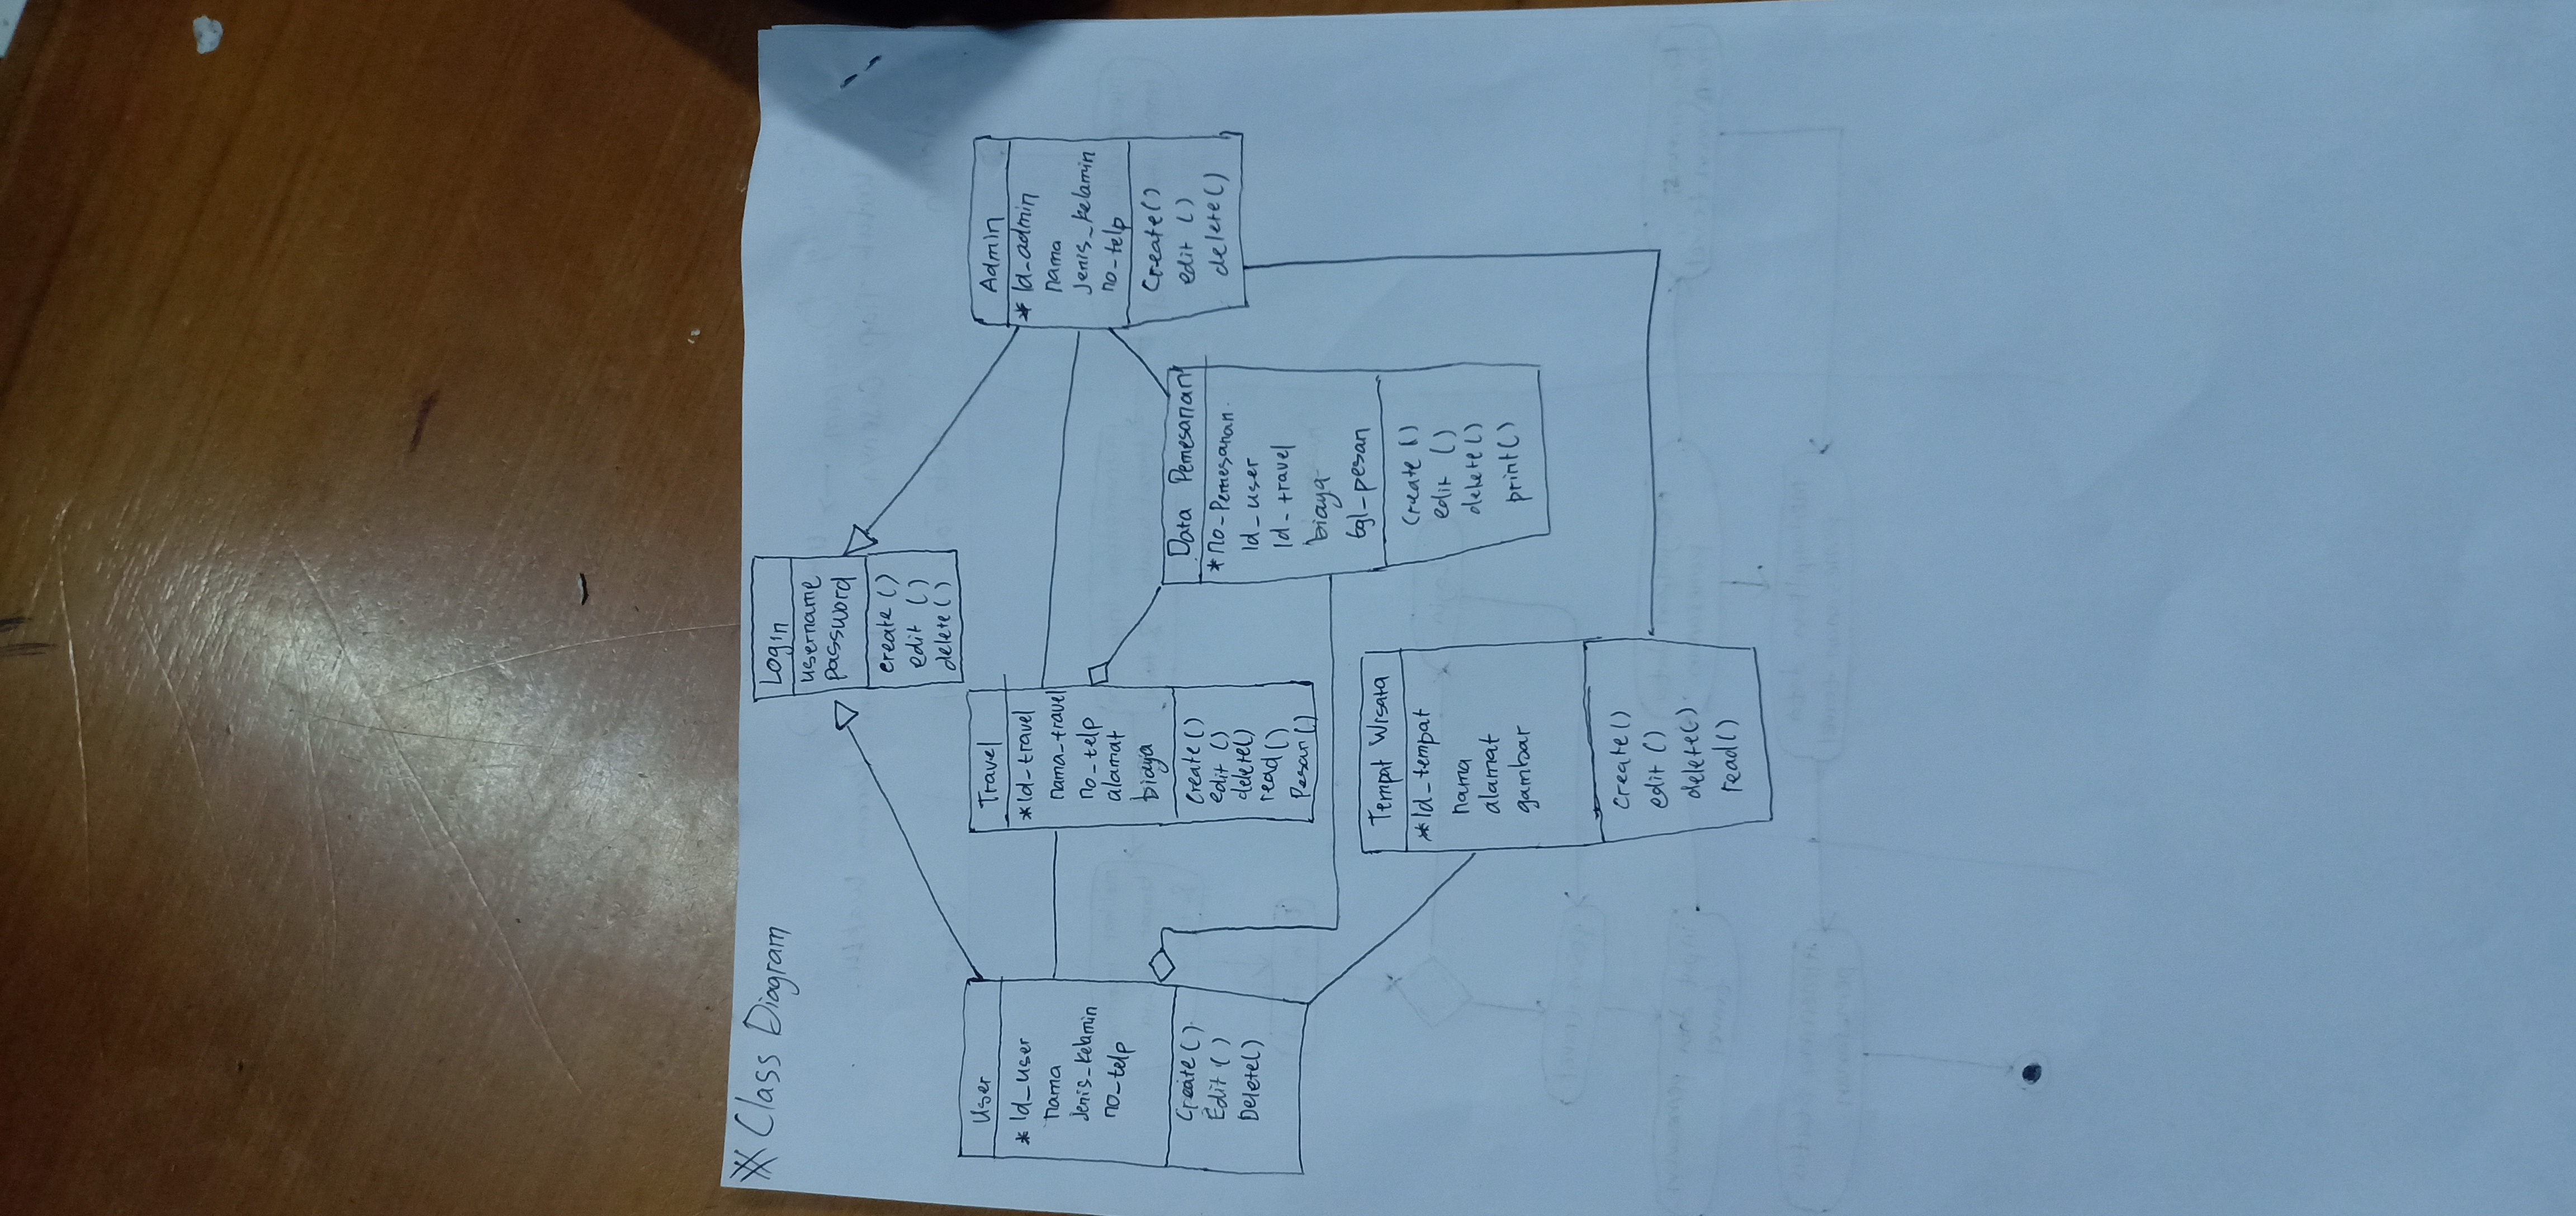 Class Diagram
Login
username
password
create ()
edit ()
delete ()
User
* Id_user
nama
Jenis_kelamin
no_telp
Create ()
Edit ()
Delete()
Travel
* Id_travel
nama_travel
no_telp
alamat
biaya
Create ()
edit ()
delete()
read ()
Pesan ()
Admin
* Id_admin
nama
Jenis_kelamin
no_telp
Create()
edit ()
delete()
Data Pemesanan
* no_Pemesanan
Id_user
Id_travel
biaya
tgl_pesan
Create ()
edit ()
delete ()
print()
Tempat Wisata
* Id_tempat
nama
alamat
gambar
Create ()
edit ()
delete()
read ()